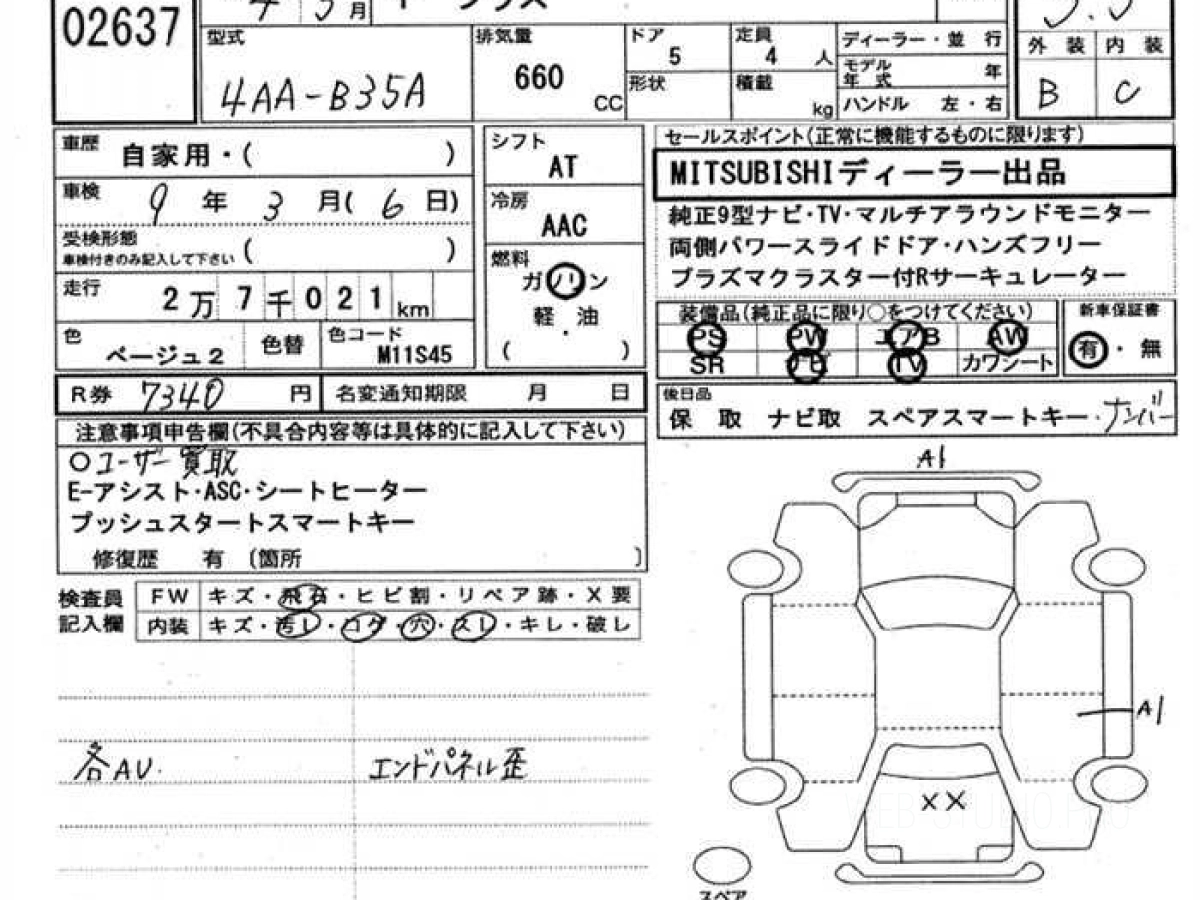 02637
4 3月
T プラス
3.5
型式
4AA-B35A
排気量
660
CC
ドア
5
形状
定員
4 人
積載
kg
ディーラー・並 行
モデル年式 年
ハンドル 左・右
外 装 内 装
B C
車歴 自家用・( )
車検 9 年 3 月( 6 日)
受検形態
車検付きのみ記入して下さい ( )
走行 2万7千021km
色 ベージュ2
色替
色コード M11S45
シフト
AT
冷房
AAC
燃料
ガソリン
軽・油
( )
セールスポイント(正常に機能するものに限ります)
MITSUBISHIディーラー出品
純正9型ナビ・TV・マルチアラウンドモニター
両側パワースライドドア・ハンズフリー
プラズマクラスター付Rサーキュレーター
装備品(純正品に限り○をつけてください)
PS PW エアB AW
SR ナビ TV カワシート
新車保証書
有・無
R券 7340 円 名変通知期限 月 日
後日品
保 取 ナビ取 スペアスマートキー・ナンバー
注意事項申告欄(不具合内容等は具体的に記入して下さい)
○ユーザー買取
E-アシスト・ASC・シートヒーター
プッシュスタートスマートキー
修復歴 有 〔箇所 〕
検査員
記入欄
FW キズ・飛石・ヒビ割・リペア跡・X要
内装 キズ・汚レ・コゲ・穴・スレ・キレ・破レ
各AU.
エンドパネル歪
A1
A1
XX
スペア